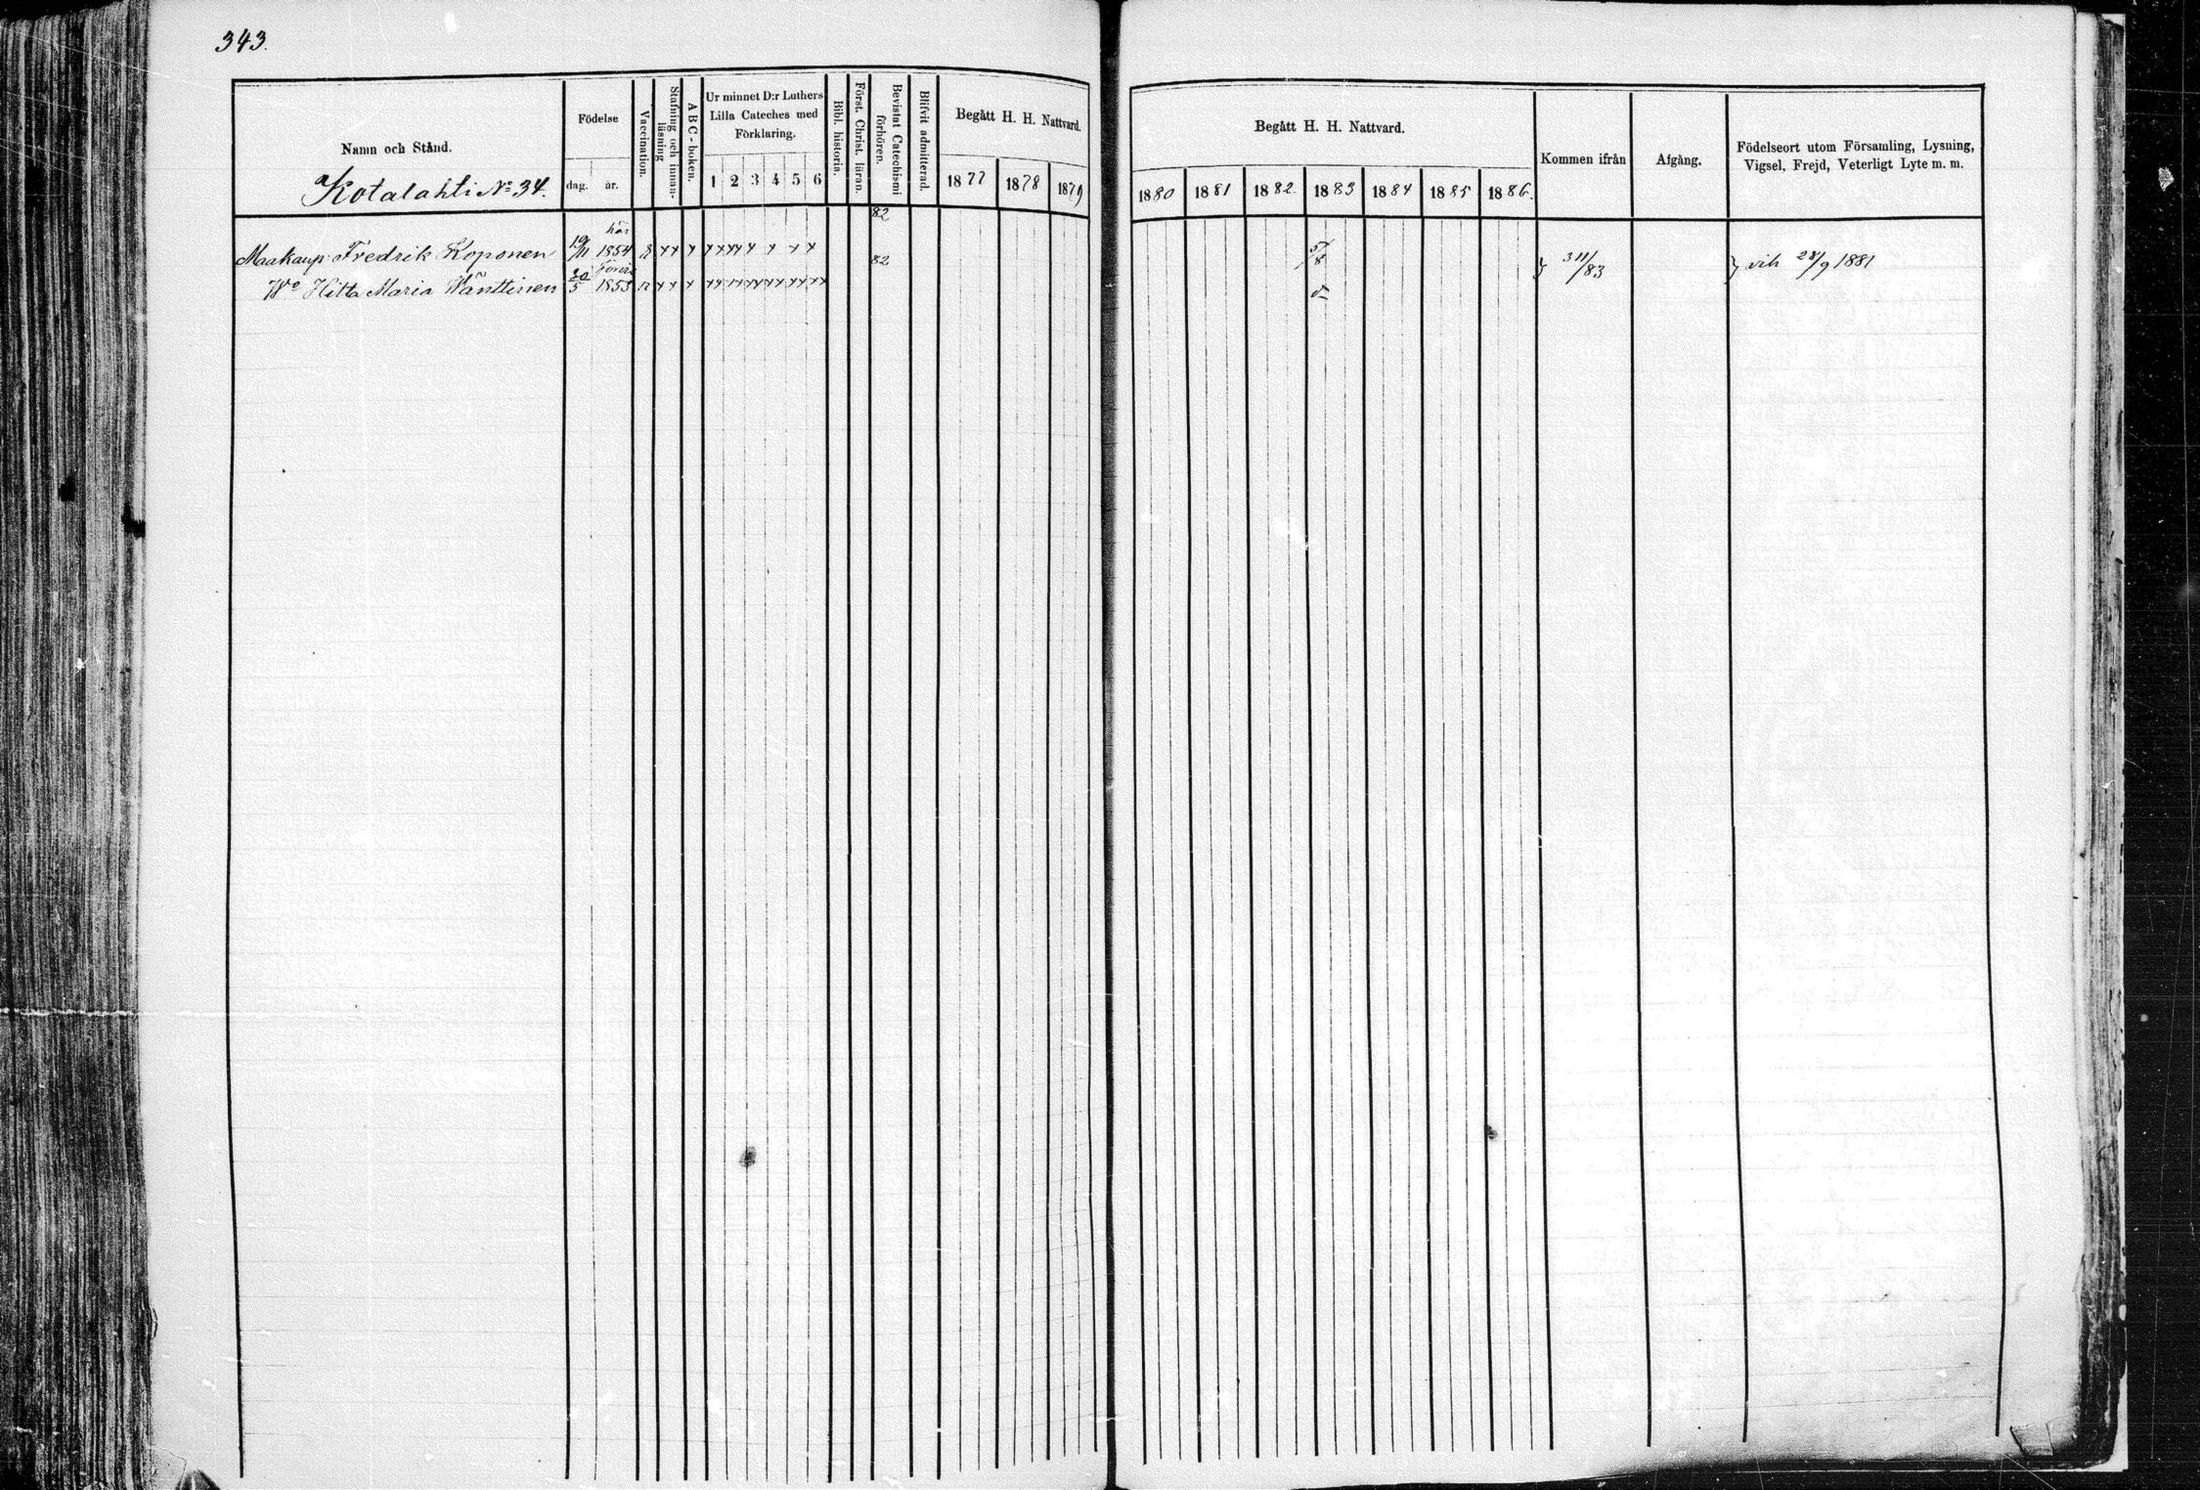 343.
Namn och Stånd.
Kotalahti No. 34.
Födelse
dag. år.
Vaccination.
Stafning och innan-
läsning
A B C - boken.
Ur minnet D:r Luthers
Lilla Cateches med
Förklaring.
1 2 3 4 5 6
Bibl. historia.
Först. Christ. läran.
Bevistat Catechismi
förhören.
Blifvit admitterad.
Begått H. H. Nattvard.
1877 1878 1879
Begått H. H. Nattvard.
1880 1881 1882. 1883 1884 1885 1886.
Kommen ifrån
Afgång.
Födelseort utom Församling, Lysning,
Vigsel, Frejd, Veterligt Lyte m. m.
82
Maakaup. Fredrik Koponen 19/11 1854 82 5/8 311/83 vih 28/9 1881
Wo Hitta Maria Wänttinen 30/5 1853